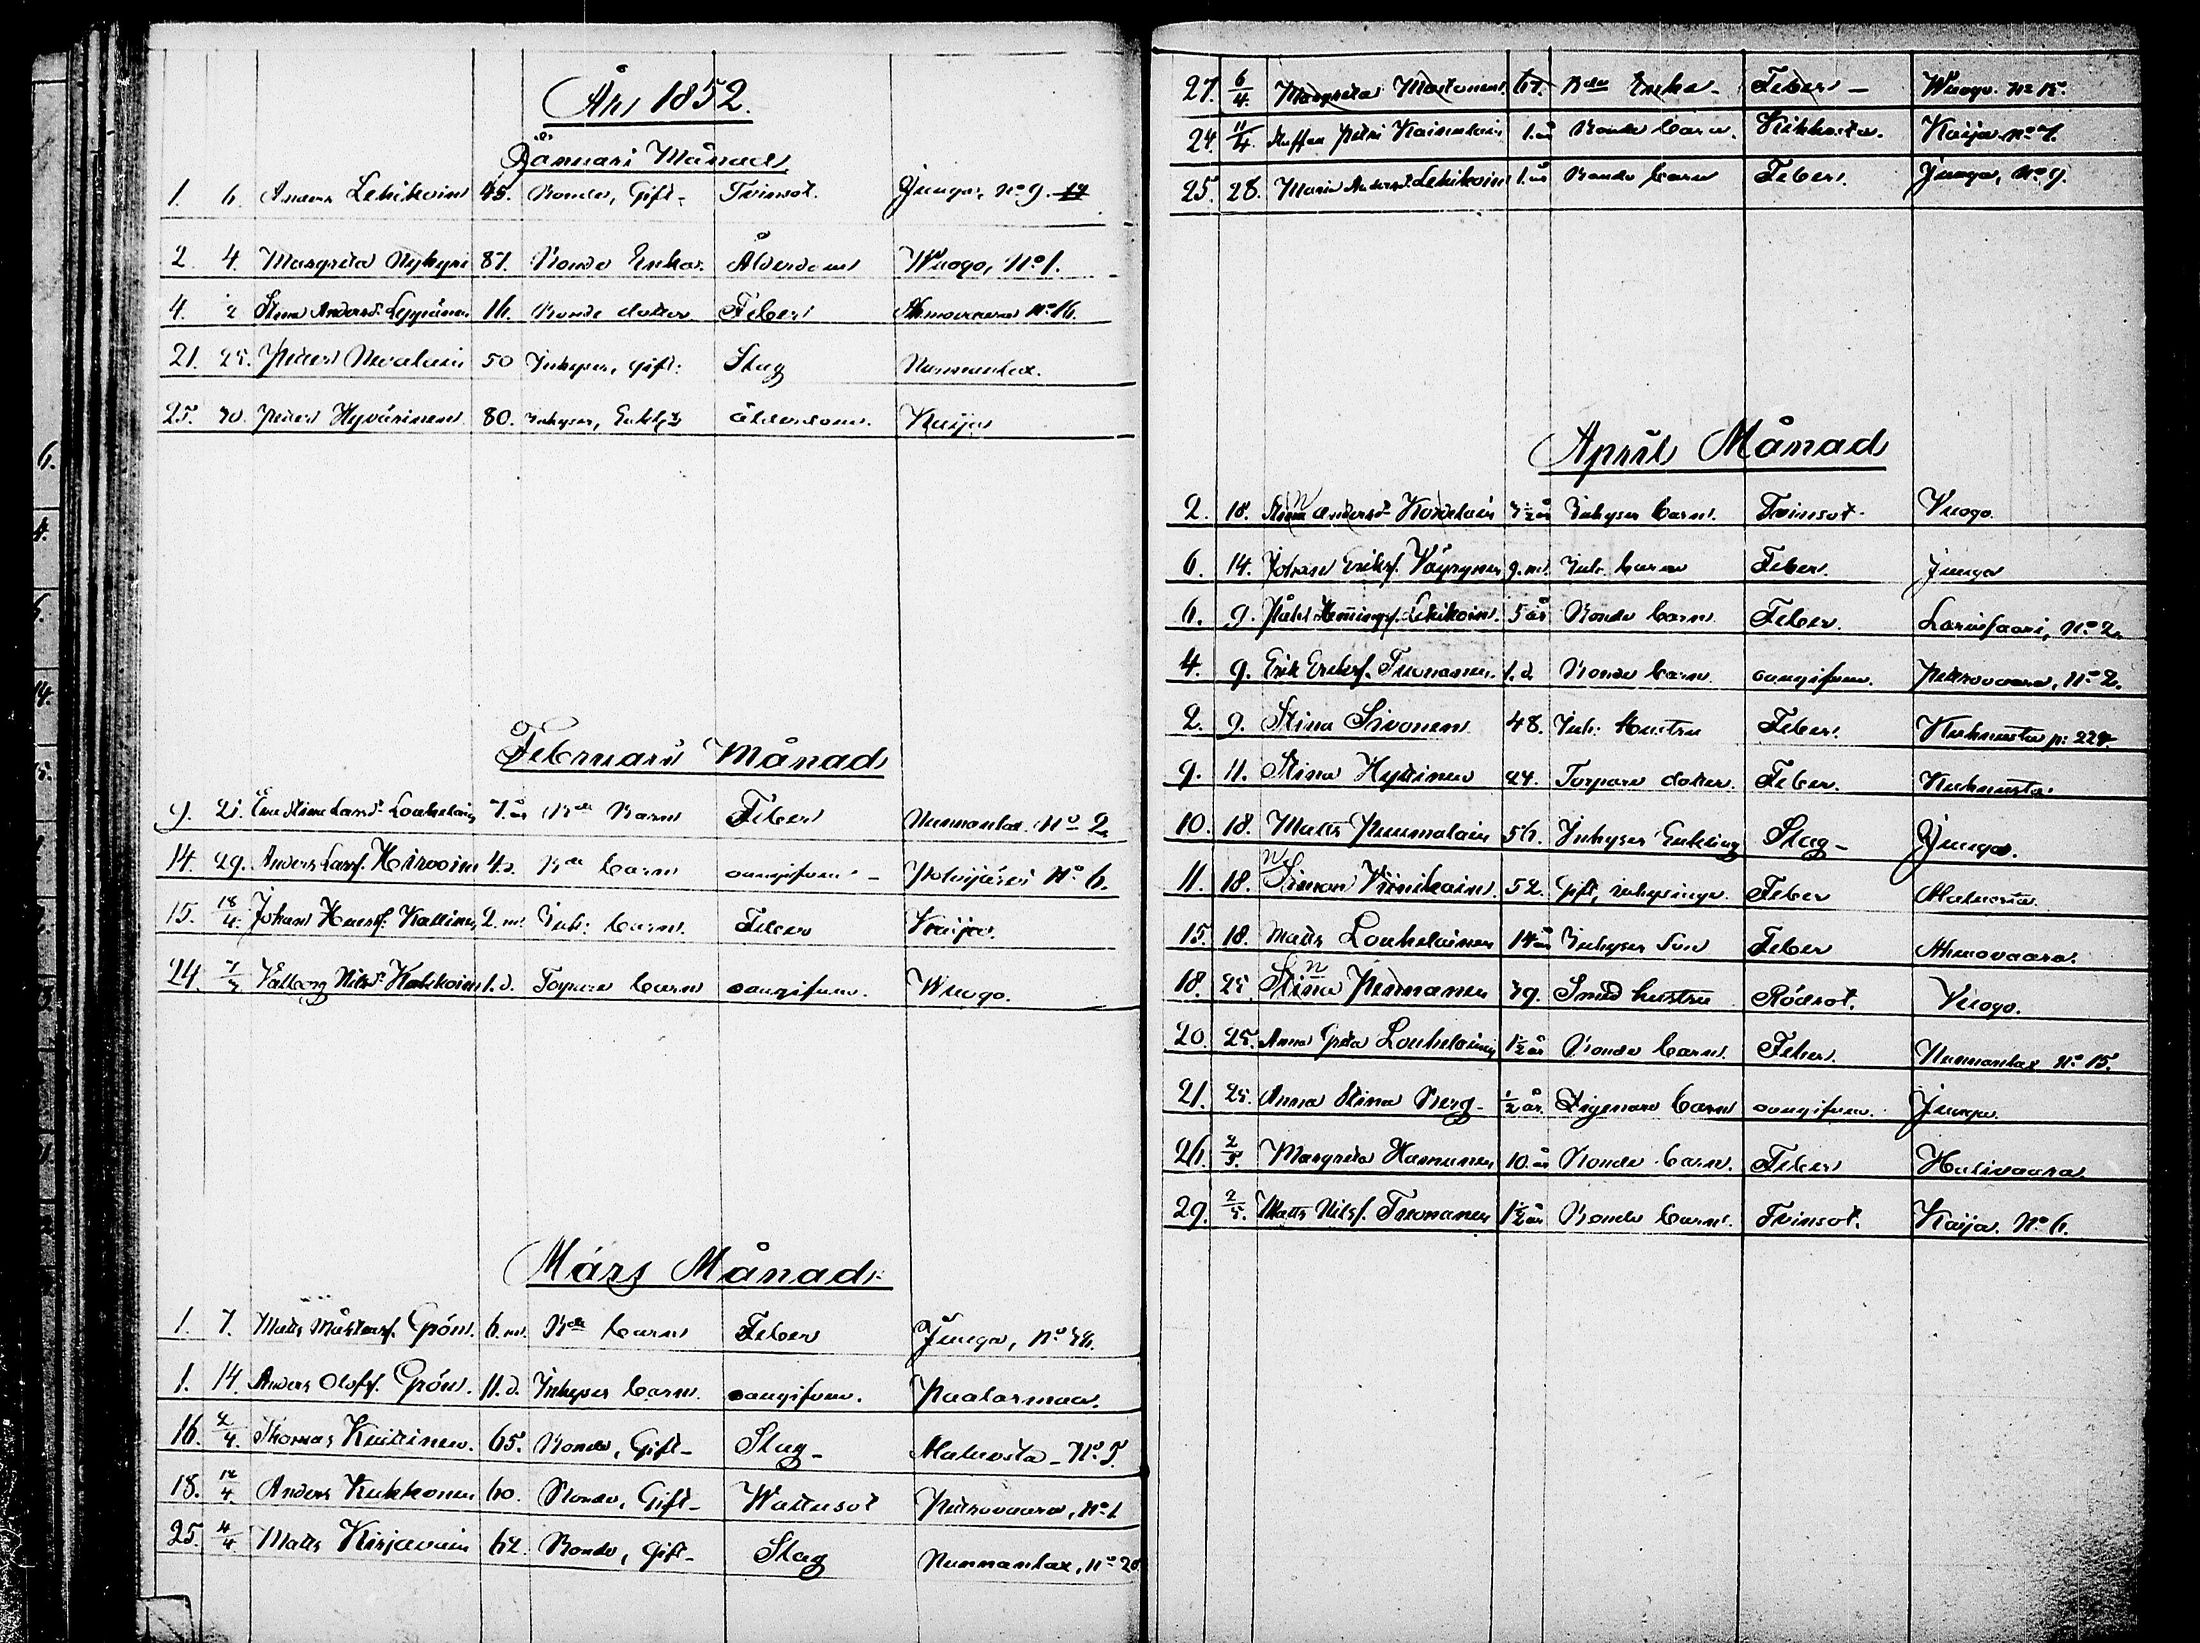 År 1852.
Januari Månad
1. 6. Anders Lehikoin 45. Bonde, Gift- Tvinsot. Juuga, No 9.
2 4. Margreta Nykyri 87. Bonde Enka. Ålderdom Wuogo, No 1.
4. 2 Stina Andersd. Leppänen 16. Bonde dotter Feber Ahmovaara No 16.
21. 25. Petter Nevalain 50 Inhyses, gift. Slag Nunnanlax.
25. 30. Petter Hyvärinen 80. Inhyses, Enkl. ålderdom. Kaija
Februari Månad
9. 21. Eva Stina Larsd. Louhelain 7. år Bde Barn Feber Nunnanlax. No 2
14 29. Anders Larsf. Hirvoin 4. d. Bde barn oangifven - Polvijärvi No 6.
15. 18/4. Johan Kallinen 2. m. Inh: barn. Feber Kaija.
24. 7/3 Valborg Nilsd. Kahkoin 1. d. Torpare barn oangifven. Wuogo.
Mars Månad
1. 7. Matts Grön. 6. m. Bde barn Feber Juuga, No
1. 14. Anders Olofsf. Grön. 11. d. Inhyses barn. oangifven. Paalasmaa.
16. 2/4. Thomas Kuittinen. 65. Bonde, Gift- Slag- Alaluosta - No 5.
18. 12/4. Anders Kukkonen 60. Bonde, Gift- Wattusot Petrovaara, No 1
25. 4/4 Matts Kirjavain 62. Bonde, Gift- Slag Nunnanlax, No 20
27. 6/4. Margreta Martonen 67. Bde Enka- Feber - Wuogo. No 15.
24. 11/4. Staffan Petri Kainulain 1. år Bonde barn. Kikhosta. Kaija No 7.
25. 28. Maria Andersd. Lehikoin 1. år Bonde barn Feber. Juuga, No 9.
April Månad
2. 18. Stina Andersd. Korhelain 3 1/2 år Inhyses barn. Tvinsot. Vuogo
6. 14. Johan Eriksf. Väyrynen 9. m. Inh. barn Feber. Juuga
6. 9. Påhl Henningsf. Lehikoin. 5 år Bonde barn Feber. Larinsaari, No 2.
4. 9. Erik Eriksf. Tuononen. 1. d. Bonde barn oangifven. Petrovaara, No 2.
2. 9. Stina Sivonen 48. Inh: Hustru Feber. Kuhnusta p. 224.
9. 11. Stina Hyttinen 24. Torpare dotter. Feber. Kuhnusta.
10. 18. Matts Puumalain 56. Inhyses Enkling Slag- Juuga.
11. 18. Simon Viinikain. 52. Gift, inhysinge. Feber Alaluosta
15. 18. Matts Louhelainen 14 år Inhyses Son Feber Ahmovaara.
18. 25. Stina Pesonanen 39. Smed hustru Rödsot. Vuogo.
20. 25. Anna Greta Louhelainen 1 1/2 år Bonde barn. Feber. Nunnanlax No 15.
21. 25. Anna Stina Berg- 1/2 år. Zigenare barn oangifven. Juuga
26. 2/5. Margreta Hamunen 10. år Bonde barn. Feber Halivaara
29. 2/5. Matts Nilsf. Tuononen 1 1/2 år Bonde barn. Tvinsot. Kaija. No 6.